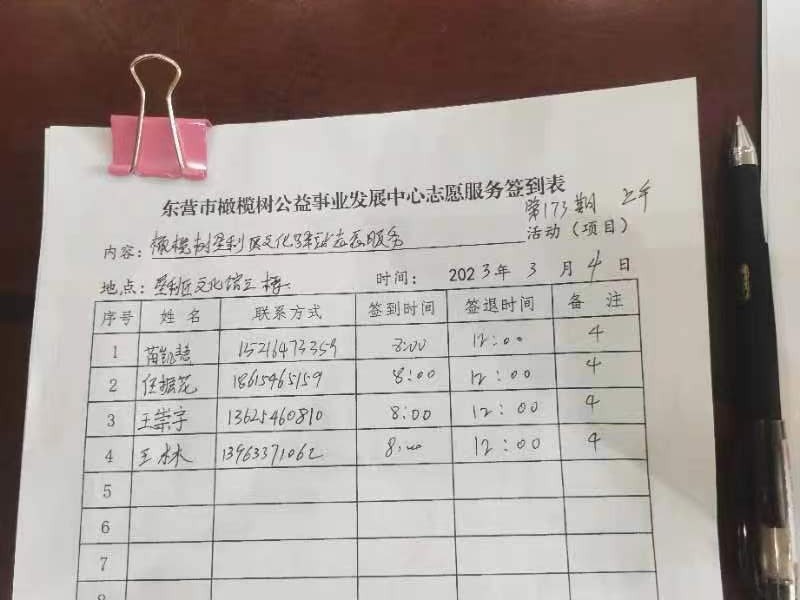 东营市橄榄树公益事业发展中心志愿服务签到表
第173期 上午
内容：橄榄树垦利区文化驿站志愿服务 活动（项目）
地点：垦利区文化馆三楼 时间：2023年3月4日
序号 姓名 联系方式 签到时间 签退时间 备注
1 苗凯慧 15216473359 8:00 12:00 4
2 任振花 18615465159 8:00 12:00 4
3 王崇宇 13625460810 8:00 12:00 4
4 王水 13963371062 8:00 12:00 4
5
6
7
8